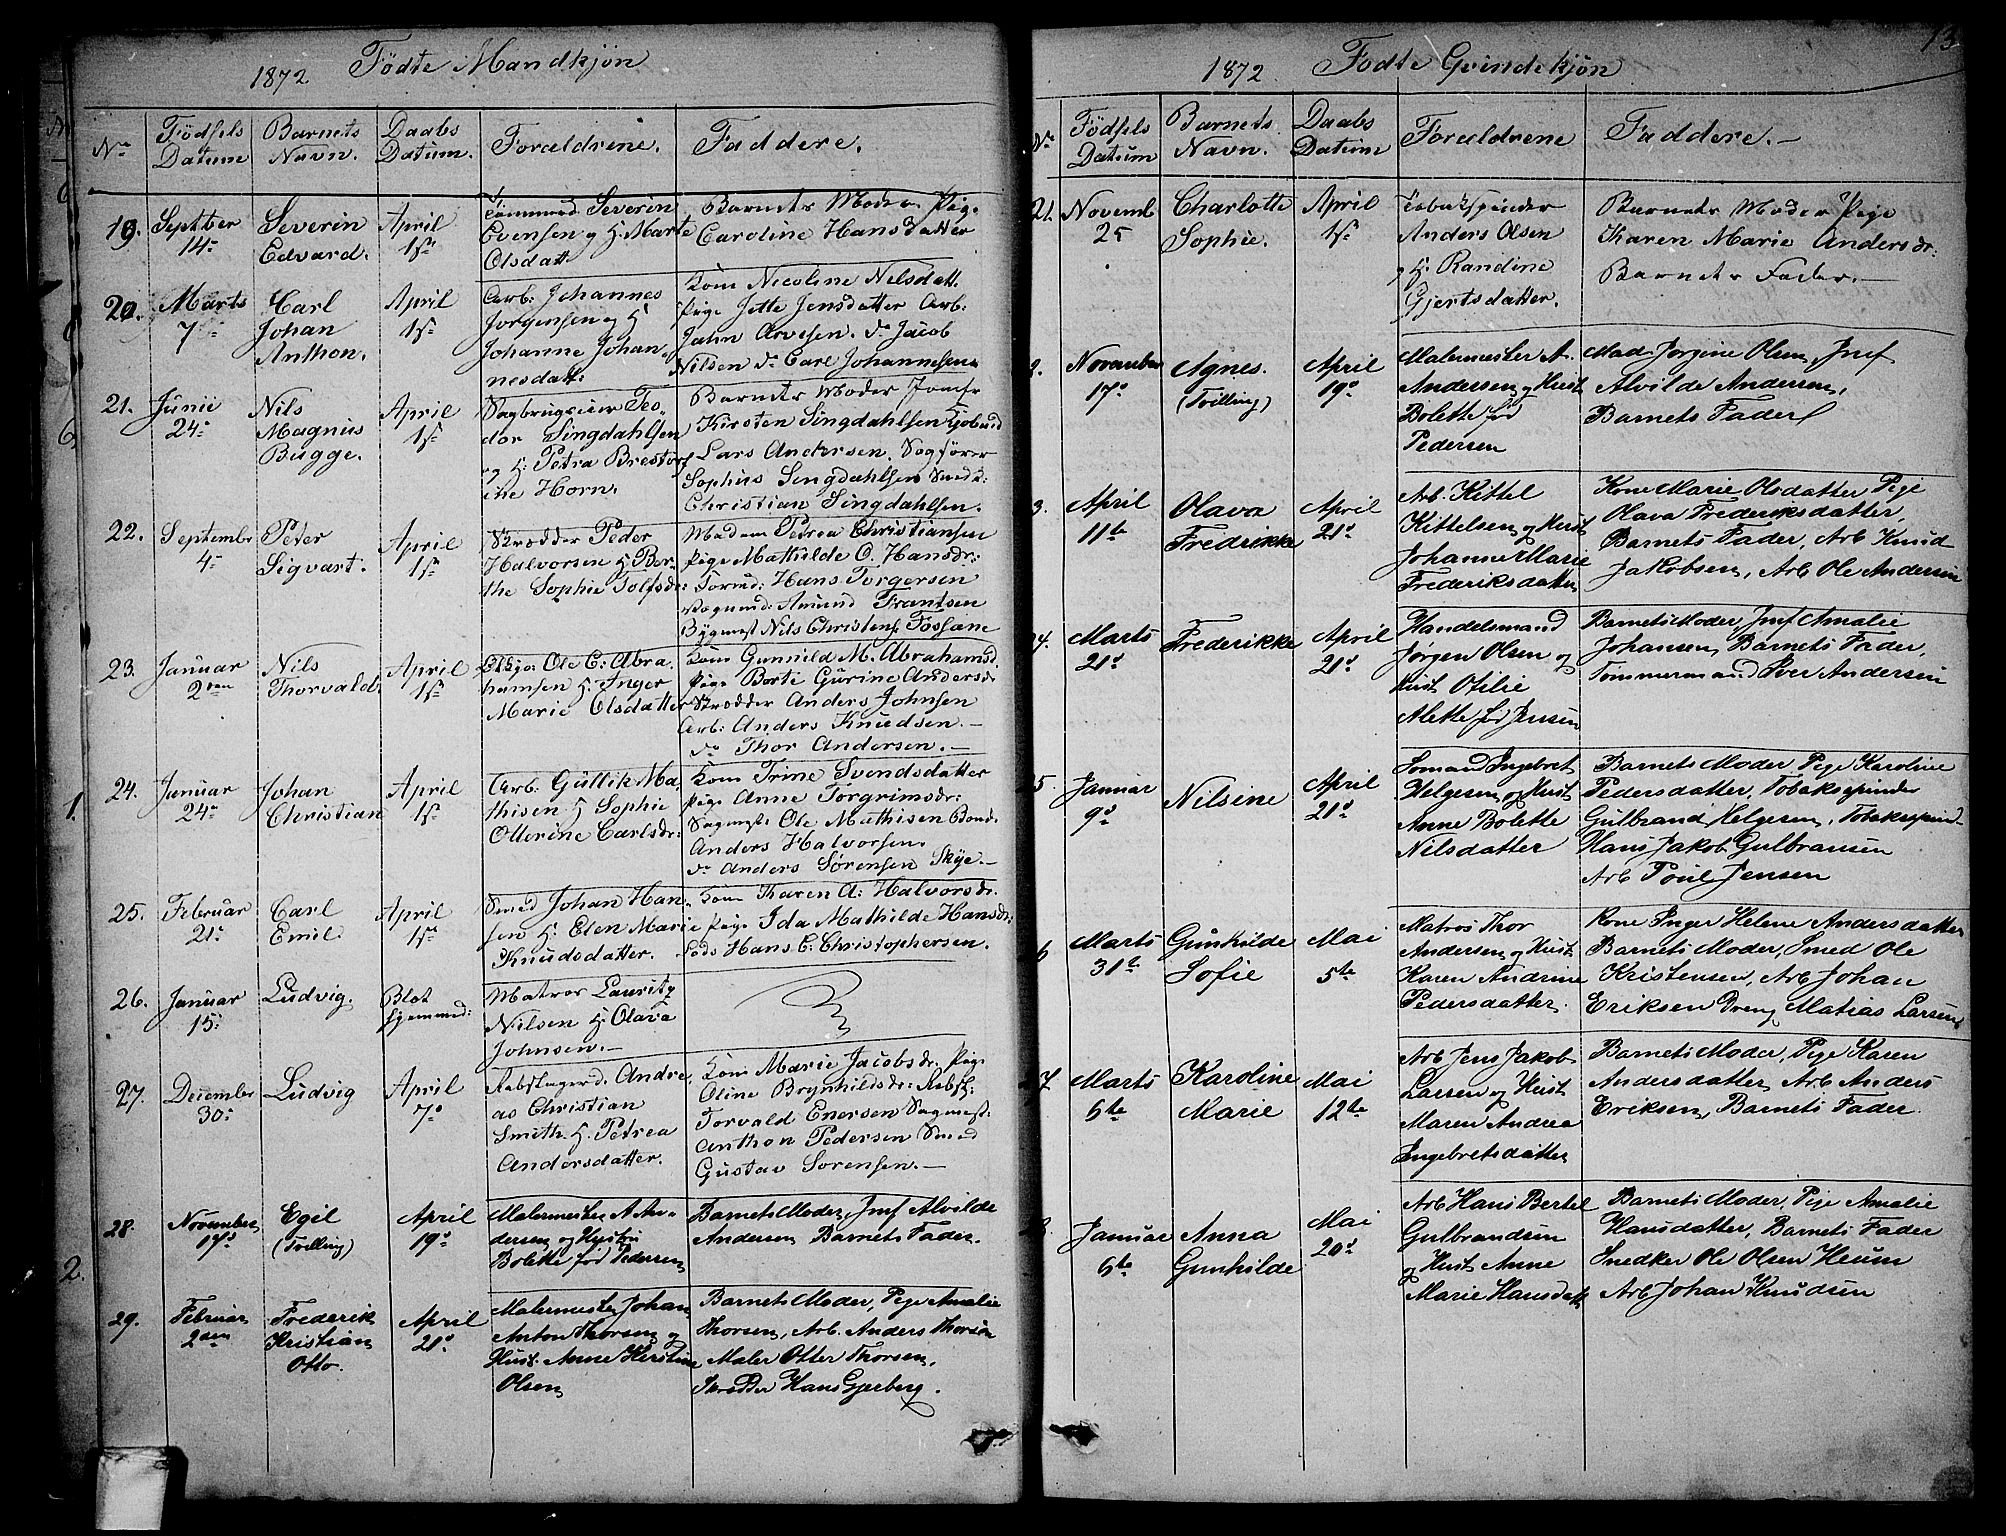 1872 Födte Mandkjön
No Födsels Datum Barnets Navn. Daabs Datum. Foraldrene. Faddere.
19. Septber 14de Severin Edvard. April 1ste
Severin
Evensen og H. Marte
Olsdatt.
Barnets Moder Pige
Caroline Hansdatter
20. Marts 7de Carl Johan Anthon. April 1ste
Arb: Johannes
Jorgensen og H
Johanne Johan
nesdatt.
Kone Nicoline Nilsdatt.
Pige Jette Jensdatter Arb:
Jahn Arvesen. do Jacob
Nilsen do Carl Johannesen
21. Junii 24de Nils Magnus Bugge. April 1ste
Teo
dor Singdahlsen
og H: Petra Brestorf
ine Horn.
Barnets Moder Jomfr
Kirsten Singdahlsen
Lars Andersen. Sagförer
Sophus Singdahlsen
Christian Singdahlsen.
22. Septembr 4de Peter Sigvart. April 1ste
Skrædder Peder
Halvorsen H Ber-
the Sophie Tolfsdr:
Madam Petrea Christiansen
Pige Mathilde O. Hansdr:
Hans Torgersen
Amund Frantsen
Bygmest Nils Christens. Fossane
23. Januar 2den Nils Thorvald April 1ste
Ole C: Abra
hamsen H. Inger
Marie Olsdatter
Kone Gunnild M. Abrahamsd.
Pige Borte Gurine Andersdr
Skrædder Anders Johnsen
Arb: Anders Knudsen.—
do Thor Andersen.—
24. Januar 24de Johan Christian April 1ste
Arb: Gullik Ma
thisen H Sophie
Otterine Carlsdr:
Kone Trine Svendsdatter
Pige Anne Torgrimsdr:
Sagmest: Ole Mathisen
Anders Halvorsen
do Anders Sørensen Skye.—
25. Februar 21de Carl Emil April 1ste
Smed Johan Han
sen H. Elen Marie
Knudsdatter.
Kone Karen A: Halvorsdr.
Pige Ida Mathilde Hansdr:
Lods Hans C: Christophersen.
26. Januar 15de Ludvig. Blot hjemmed:
Matros Lauritz
Nilsen H. Olava
Johnsen.—
27. December 30de Ludvig April 7de
Rebslagerd. Andre
as Christian
Smith. H. Petrea
Andersdatter.
Kone Marie Jacobsdr. Pige
Oline Brynhildsdr. Rebsl:
Torvald Enersen Sagmest:
Anthon Pedersen Smed
Gustav Sorensen.—
28. November 17de Egil (Tvilling) April 19de
Malermester A An-
dersen og Hustru
Bolette født Pedersen
Barnets Moder, Jmf Alvilde
Andersen Barnets Fader.
29. Februar 2den Frederik Kristian Otto. April 21de
Malermester Johan
Anton Thorsen og
Hust. Anne Kirstine
Olsen
Barnets Moder, Pige Amalie
Thorsen, Arb. Anders Thorsen
Maler Otter Thorsen,
Skrædder Hans Gjerberg.
13
1872. Födte Qvindekjön
No Födsels Datum Barnets Navn. Daabs Datum Foraldrene Faddere.—
21. Novemb 25 Charlotte Sophie. April 1ste
Tobakspinder
Anders Olsen
og H. Randine
Gjertsdatter.
Barnets Moder Pige
Karen Marie Andersdr:
Barnets Fader.—
2. November 17de Agnes. (Tvilling) April 19de
Malermester A.
Andersen og Hust
Bolette før
Pedersen
Mad. Jörgine Olsen, Jmf
Alvilde Andersen,
Barnets Fader
3. April 11te Olava Fredrikke April 21de
Arb Kittel
Kittelsen og Hust
Johanne Marie
Frederiksdatter
Kone Marie Olsdatter Pige
Olava Frederiksdatter,
Barnets Fader, Arb Knud
Jakobsen, Arb Ole Andersen
4. Marts 21de Frederikke April 21de
Handelsmand
Jørgen Olsen og
Hust Ofilie
Alette før Jensen
Barnets Moder, Jmf Amalie
Johansen, Barnets Fader,
Tommermand Iver Andersen
5. Januar 9de Nilsine April 21de
Somand Ingebret
Helgesen og Hust
Anne Bolette
Nilsdatter
Barnets Moder Pige Karoline
Pedersdatter, Tobakspinder
Gulbrand Helgesen, Tobakspind
Hans Jakob Gulbransen
Arb Poul Jensen
6 Marts 31te Gunhilde Sofie Mai 5te
Matros Thor
Andersen og Hust
Karen Andrine
Pedersdatter.
Kone Inger Helene Andersdatter
Barnets Moder, Smed Ole
Kristensen, Arb Johan
Eriksen Dreng Matias Larsen
7. Marts 6te Karoline Marie Mai 12te
Arb Jens Jakob
Larsen og Hust
Maren Andrea
Ingebretsdatter
Barnets Moder, Pige Karen
Andersdatter, Arb Anders
Eriksen, Barnets Fader.
8. Januar 6te Anna Gunhilde Mai 20de
Arb Hans Bertel
Gulbrandsen
og Hust Anne
Marie Hansdatt
Barnets Moder, Pige Amalie
Hansdatter, Barnets Fader
Snedker Ole Olsen Heum
Arb Johan Knudsen